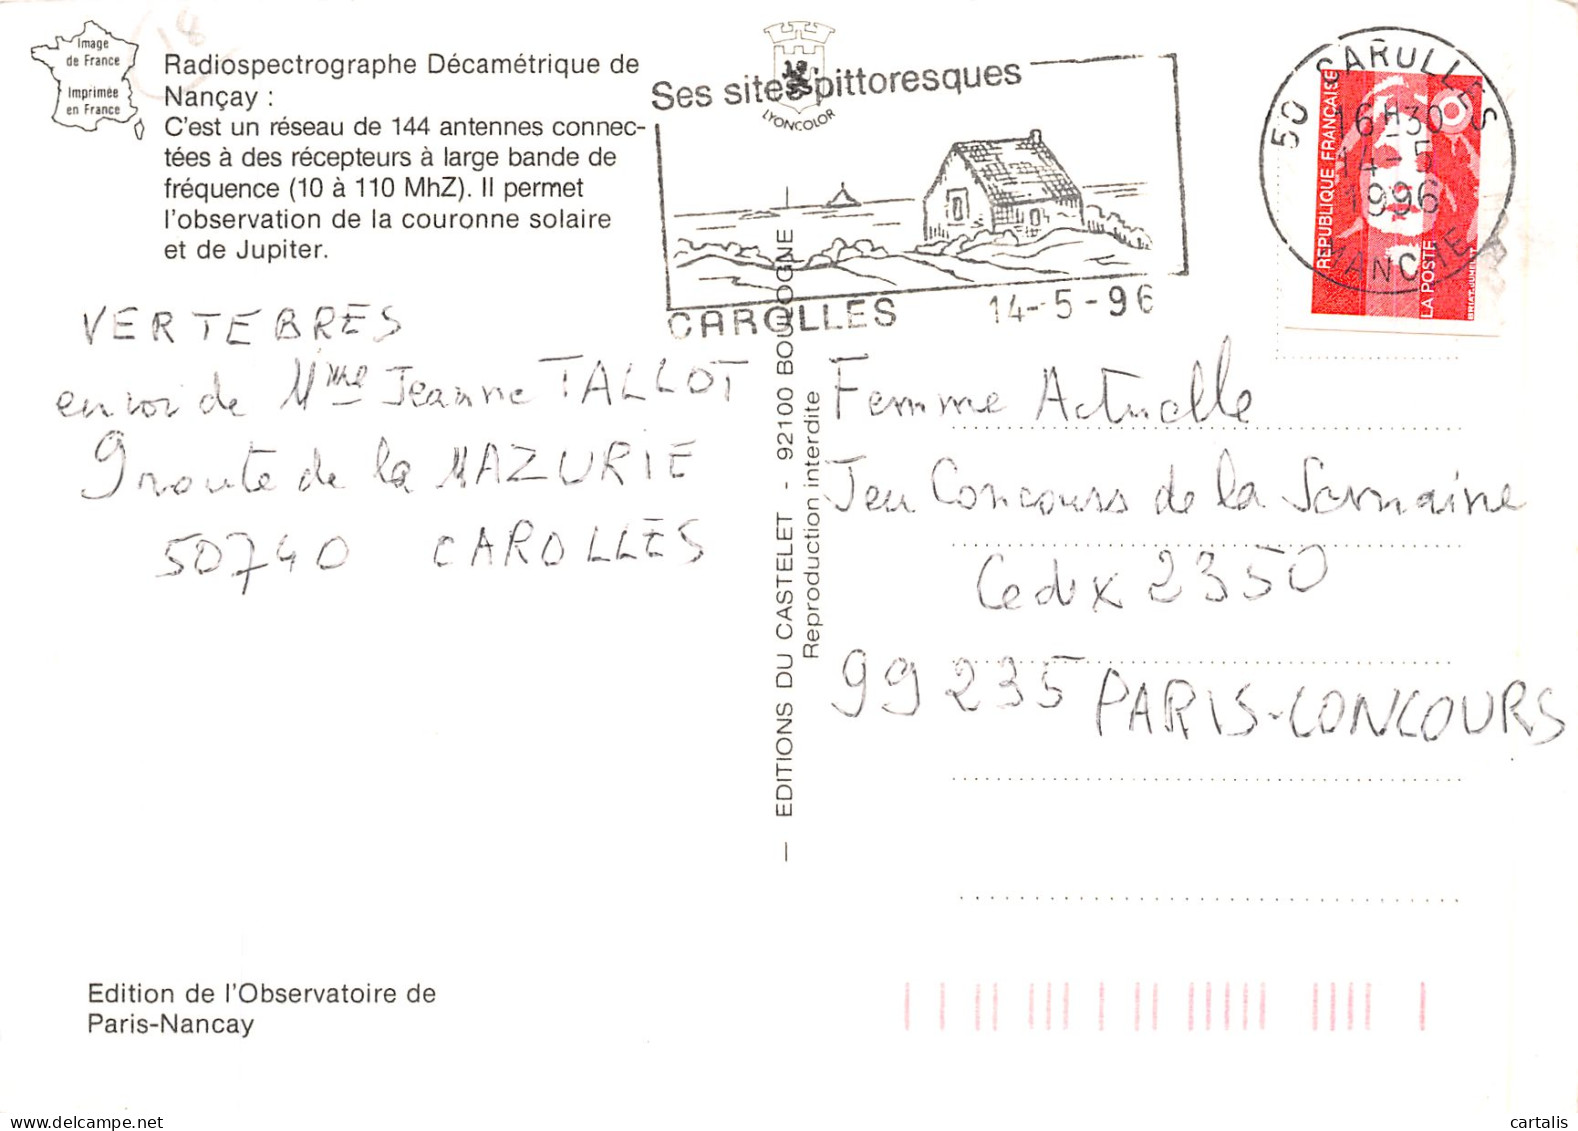 Image
de France
Imprimée
en France
Radiospectrographe Décamétrique de
Nançay :
C'est un réseau de 144 antennes connec-
tées à des récepteurs à large bande de
fréquence (10 à 110 MhZ). Il permet
l'observation de la couronne solaire
et de Jupiter.
LYONCOLOR
Ses sites pittoresques
CAROLLES 14-5-96
50 CAROLLES
16H30
14-5
1996
MANCHE
REPUBLIQUE FRANÇAISE
LA POSTE
BRIAT-JUMELET
VERTEBRES
envoi de Mme Jeanne TALLOT
9 route de la MAZURIE
50740 CAROLLES
— EDITIONS DU CASTELET - 92100 BOULOGNE
Reproduction interdite
Femme Actuelle
Jeu Concours de la Semaine
Cedex 2350
99235 PARIS-CONCOURS
Edition de l'Observatoire de
Paris-Nancay
cartalis